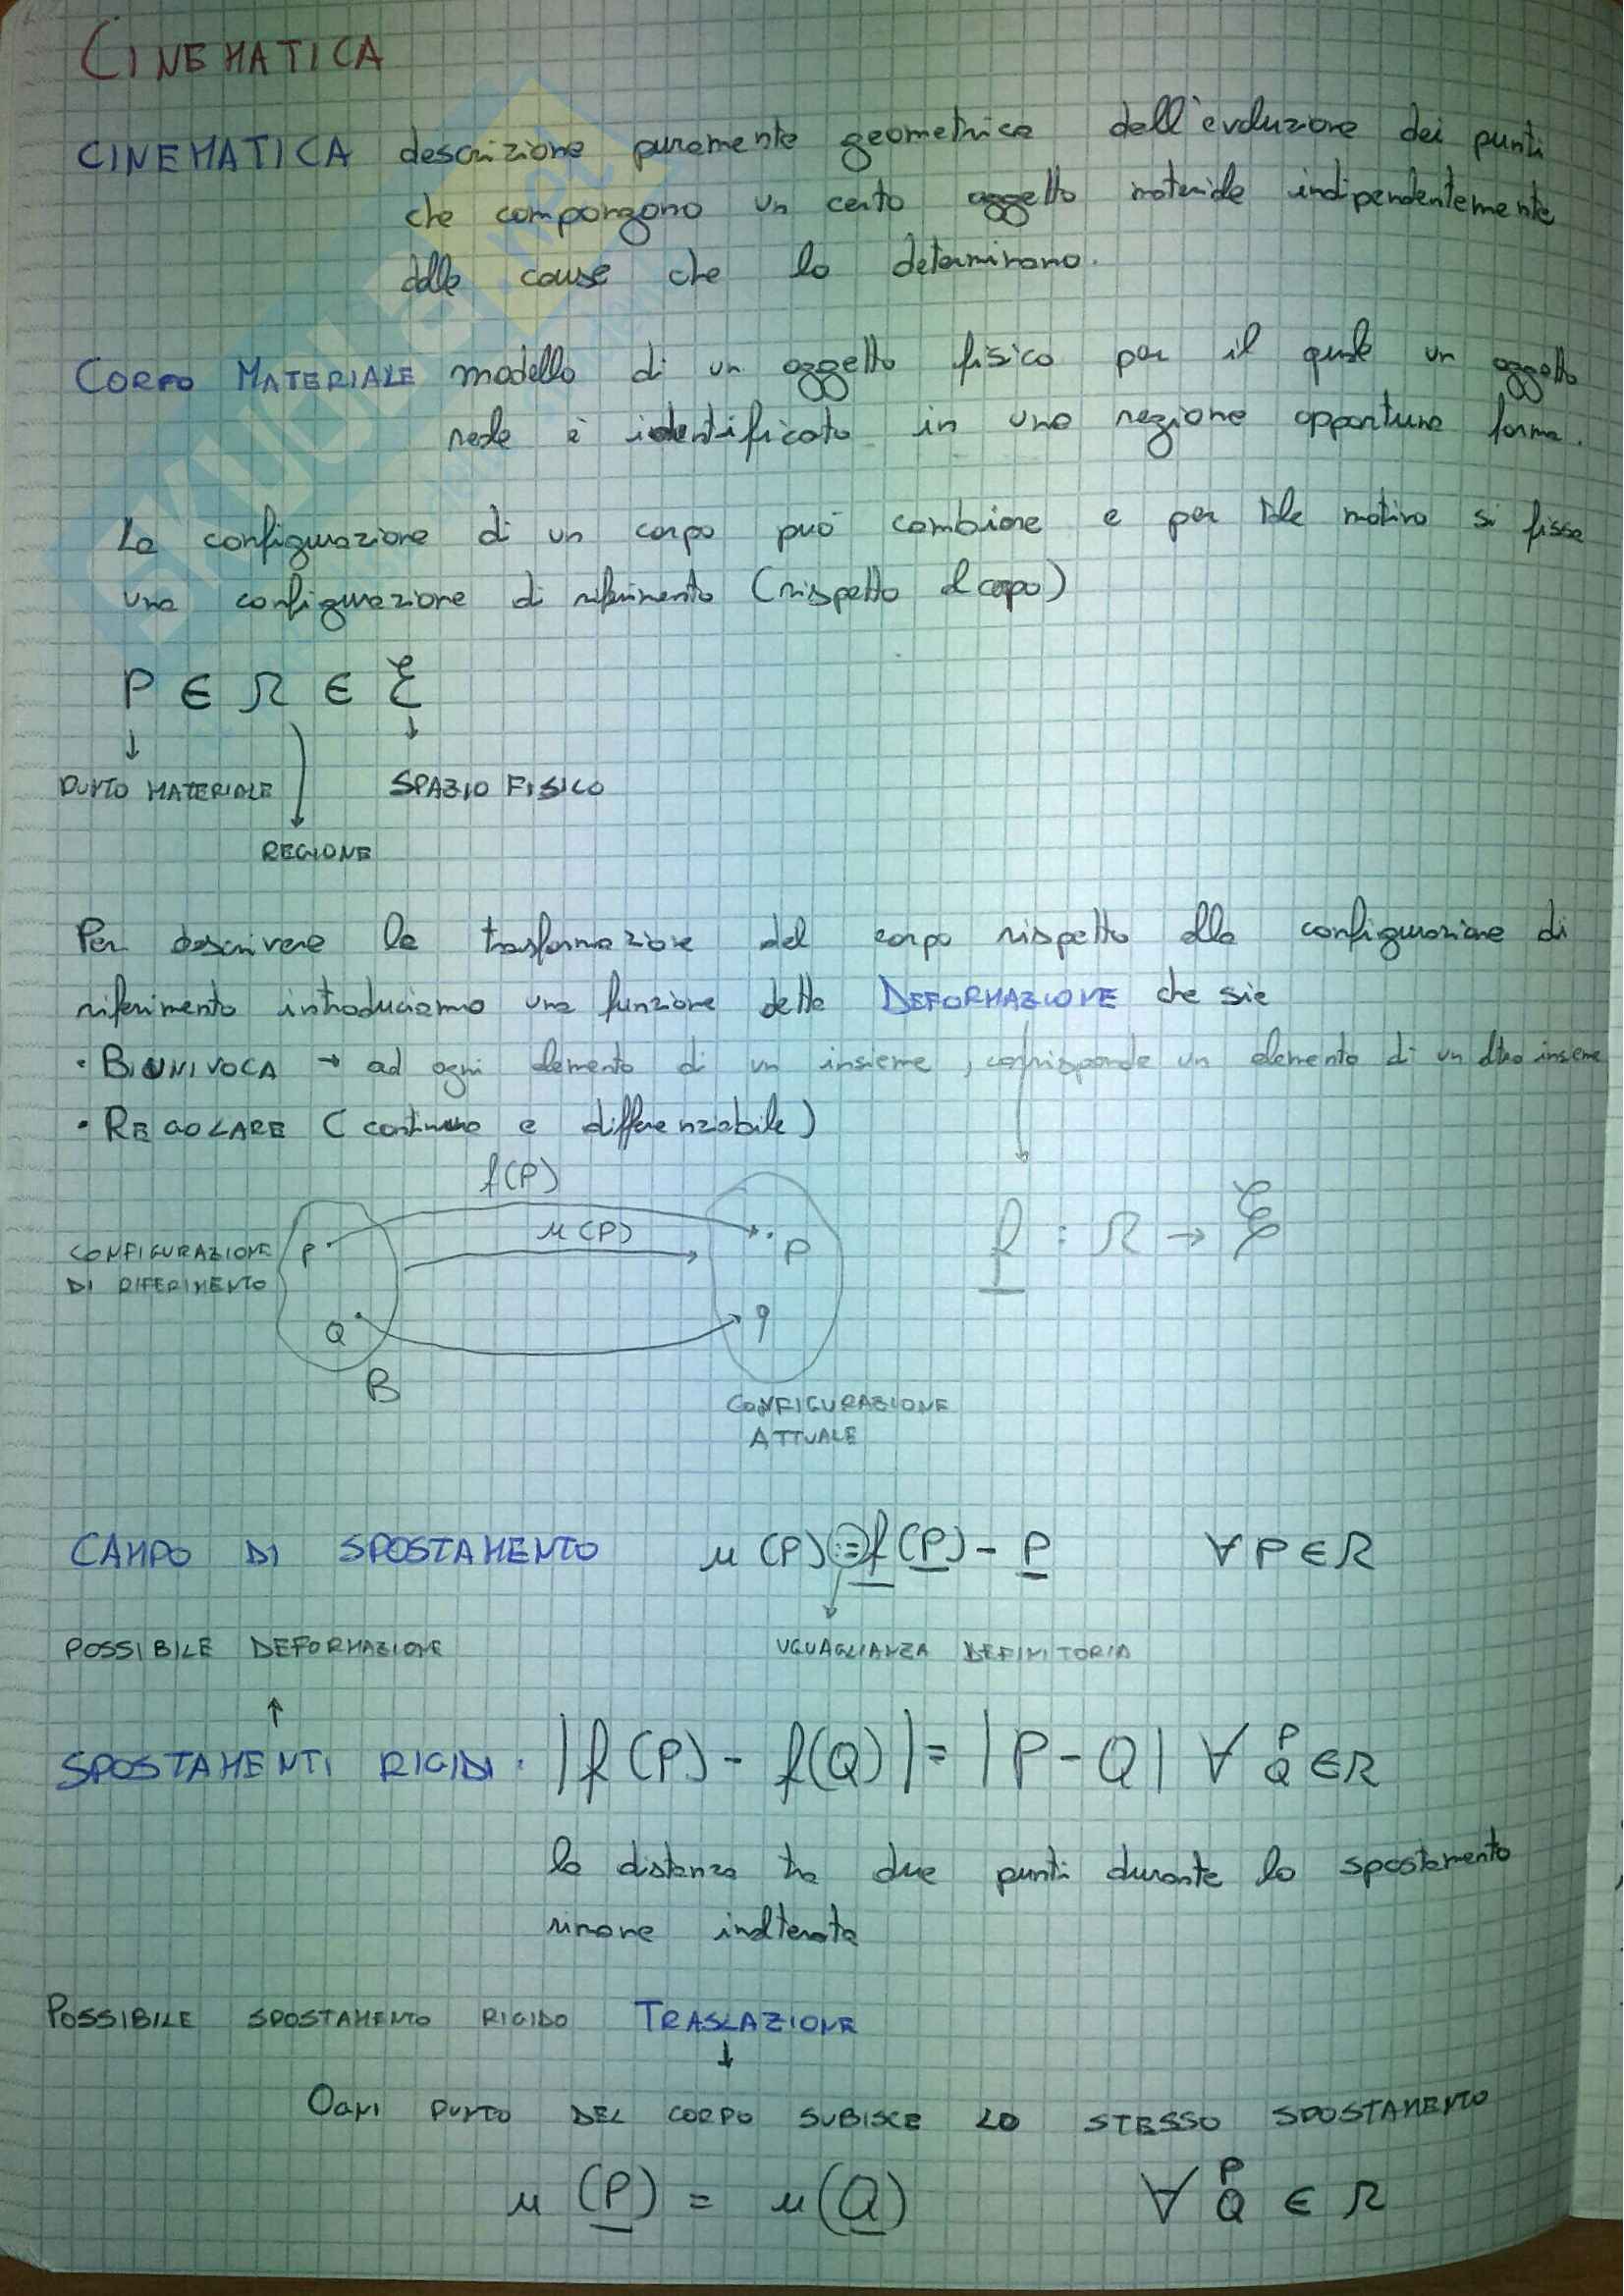 CINEMATICA
CINEMATICA descrizione puramente geometrica dell'evoluzione dei punti
che compongono un certo oggetto materiale indipendentemente
dalle cause che lo determinano.
CORPO MATERIALE modello di un oggetto fisico per il quale un oggetto
reale è identificato in una regione opportuna forma.
La configurazione di un corpo può cambiare e per tale motivo si fissa
una configurazione di riferimento (rispetto al corpo)
P ∈ Ω ∈ ℰ
↓ ↓
PUNTO MATERIALE SPAZIO FISICO
REGIONE
Per descrivere la trasformazione del corpo rispetto alla configurazione di
riferimento introduciamo una funzione detta DEFORMAZIONE che sia
• BIUNIVOCA → ad ogni elemento di un insieme, corrisponde un elemento di un altro insieme
• REGOLARE (continua e differenziabile)
f(P)
u(P)
CONFIGURAZIONE
DI RIFERIMENTO
P p
f : Ω → ℰ
Q q
B
CONFIGURAZIONE
ATTUALE
CAMPO DI SPOSTAMENTO u(P) := f(P) - P ∀ P ∈ Ω
POSSIBILE DEFORMAZIONE UGUAGLIANZA DEFINITORIA
↑
SPOSTAMENTI RIGIDI. |f(P) - f(Q)| = |P - Q| ∀ P Q ∈ Ω
la distanza tra due punti durante lo spostamento
rimane inalterata
POSSIBILE SPOSTAMENTO RIGIDO TRASLAZIONE
↓
OGNI PUNTO DEL CORPO SUBISCE LO STESSO SPOSTAMENTO
u(P) = u(Q) ∀ P Q ∈ Ω
SKUOLA.net